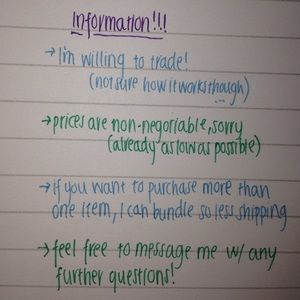 Information!!!
→ I'm willing to trade!
(not sure how it works though)
→ prices are non-negotiable, sorry
(already as low as possible)
→ if you want to purchase more than
one item, I can bundle so less shipping
→ feel free to message me w/ any
further questions!